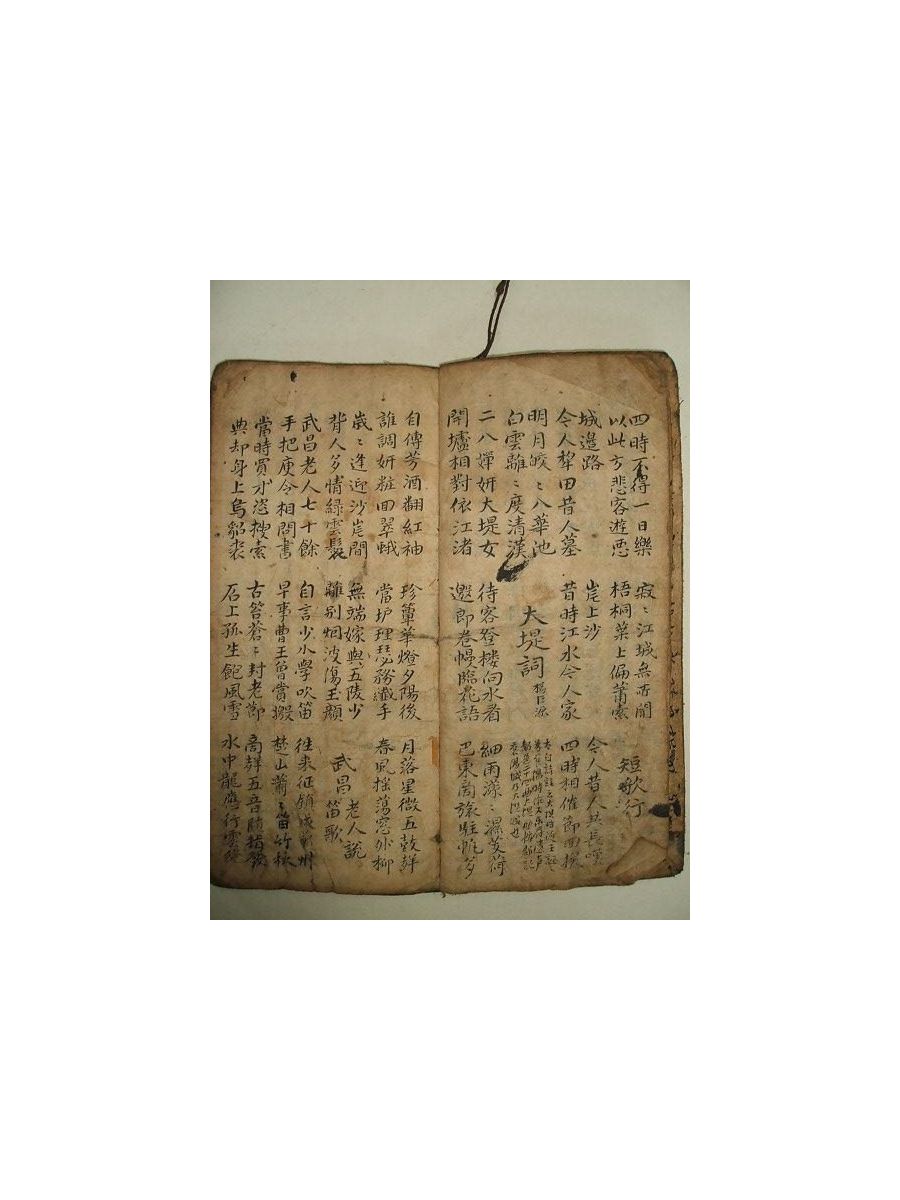 四時不得一日樂
以此方悲客遊惡
寂ヽ江城無所聞
梧桐葉上偏蕭索
短歌行
城邉路
今人犁田昔人墓
岸上沙
昔時江水今人家
今人昔人共長嘆
四時相催節囬換
明月皎ヽ入華池
白雲離ヽ度清漢
大堤詞
楊巨源
二八嬋妍大堤女
開壚相對依江渚
待客登楼向水看
邀郎卷幔臨花語
細雨濛ヽ濕芰荷
巴東商旅駐帷多
自傳芳酒翻紅袖
誰調妍粧囬翠蛾
珍簟華燈夕陽後
當炉理瑟矜纖手
月落星微五鼓聲
春風搖蕩窓外柳
歳ヽ逢迎沙岸間
背人多情緑雲鬟
無端嫁與五陵少
離别烟波傷玉顔
武昌老人說
笛歌
武昌老人七十餘
手把庾令相問書
自言少小學吹笛
早事曹王曾賞
往来征鎮戍蘄州
楚山蕭ヽ笛竹秋
當時買材恣搜索
典却身上烏貂裘
古苔蒼ヽ封老節
石上孤生飽風雪
商聲五音隨指發
水中龍應行雲絶